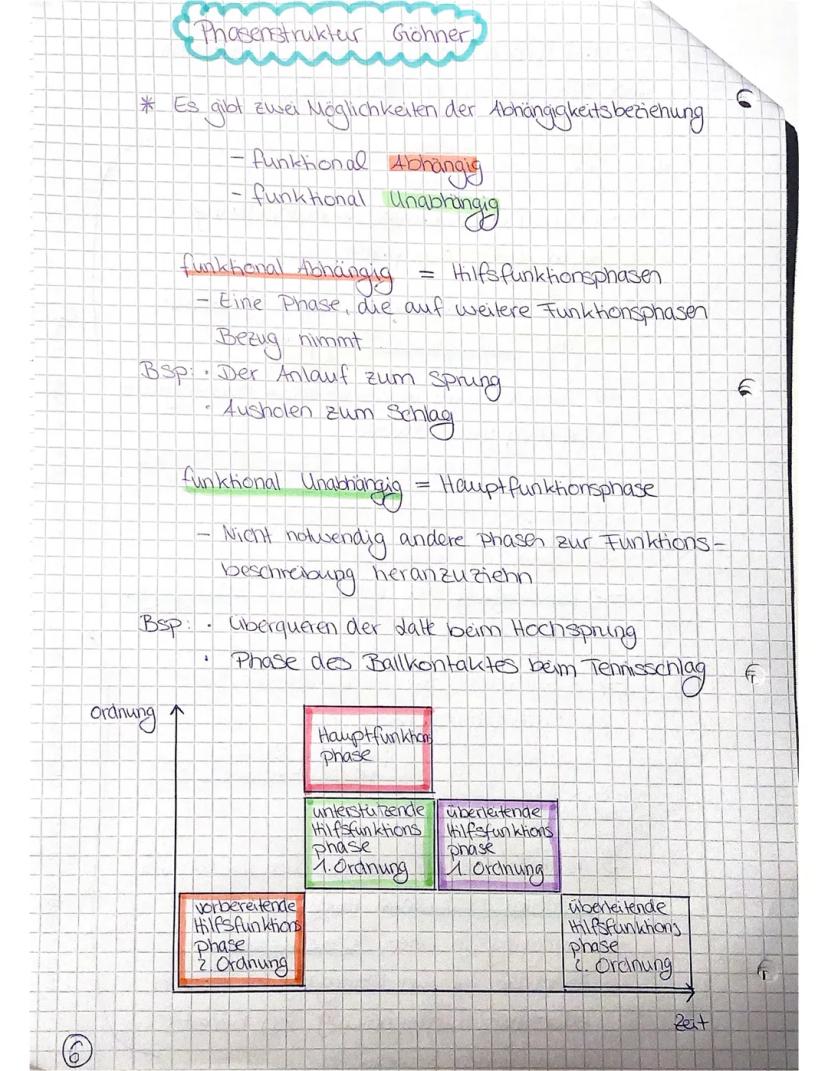 Phasenstruktur Göhner
* Es gibt zwei Möglichkeiten der Abhängigkeitsbeziehung
- funktional Abhängig
- funktional Unabhängig
funktional Abhängig = Hilfsfunktionsphasen
- Eine Phase, die auf weitere Funktionsphasen
Bezug nimmt
Bsp: · Der Anlauf zum Sprung
· Ausholen zum Schlag
funktional Unabhängig = Hauptfunktionsphase
- Nicht notwendig andere Phasen zur Funktions-
beschreibung heranzuziehn
Bsp: · überqueren der beim Hochsprung
· Phase des Ballkontaktes beim Tennisschlag
Ordnung
Hauptfunktions
phase
unterstützende
Hilfsfunktions
phase
1. Ordnung
überleitende
Hilfsfunktions
phase
1. Ordnung
vorbereitende
Hilfsfunktions
phase
2. Ordnung
überleitende
Hilfsfunktions
phase
2. Ordnung
Zeit
6